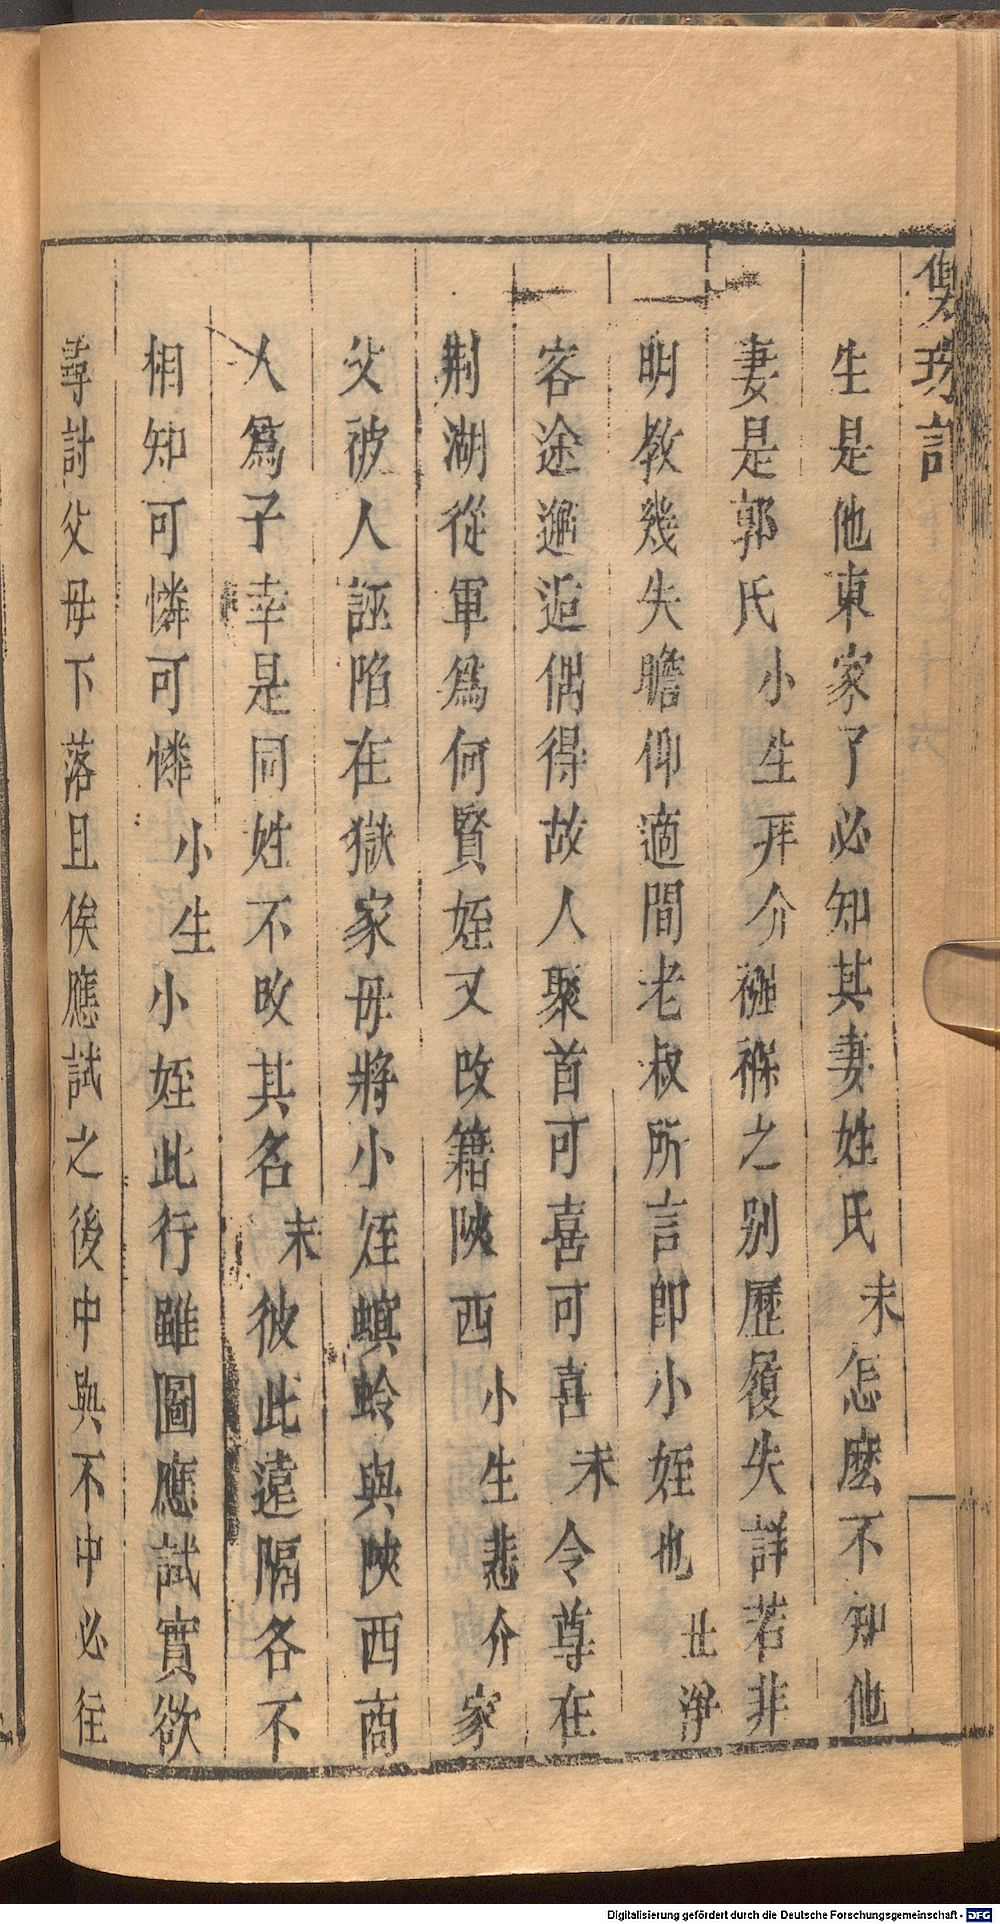 雙珠記
生是他東家了必知其妻姓氏末怎麽不知他
妻是郭氏小生拜介襁褓之别歷履失詳若非
明教幾失瞻仰適間老叔所言卽小姪也丑淨
客途邂逅偶得故人聚首可喜可喜末令尊在
荆湖從軍爲何賢姪又改籍陜西小生悲介家
父被人誣陷在獄家母將小姪螟蛉與陜西商
人爲子幸是同姓不改其名末彼此遠隔各不
相知可憐可憐小生小姪此行雖圖應試實欲
尋討父母下落且俟應試之後中與不中必往
Digitalisierung gefördert durch die Deutsche Forschungsgemeinschaft - DFG